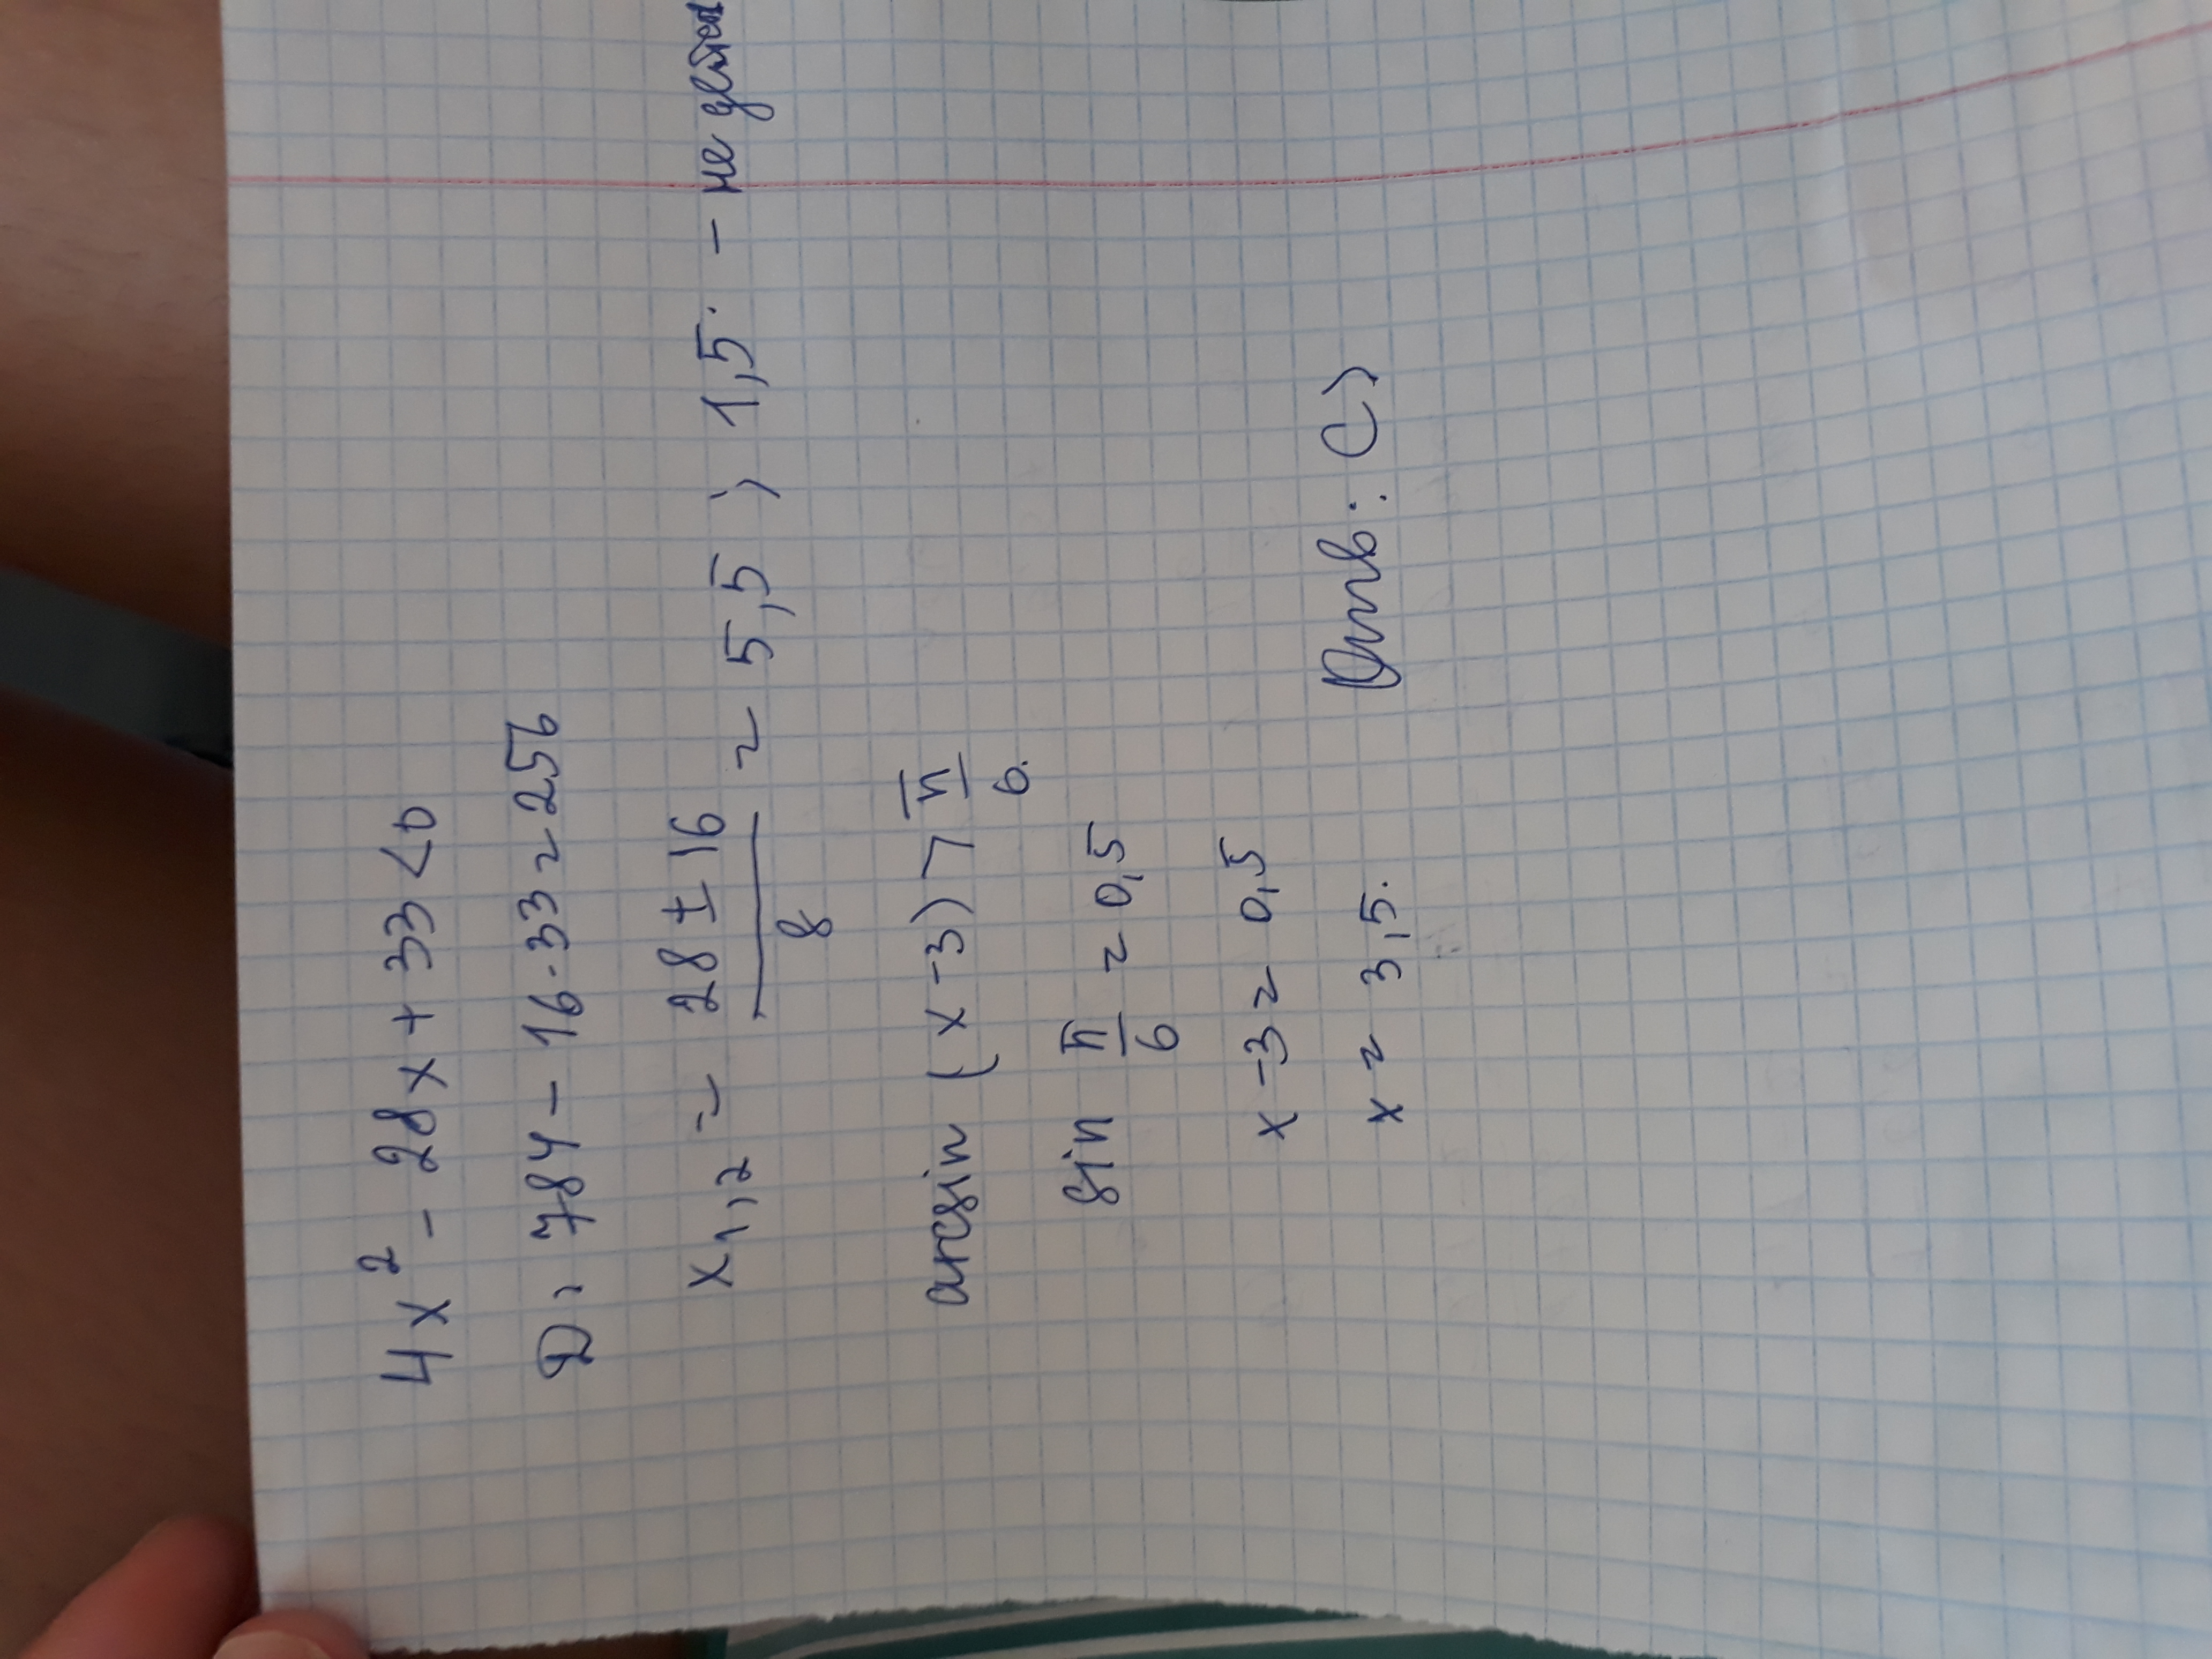 4x² - 28x + 33 < 0
D = 784 - 16·33 = 256
x₁,₂ = (28 ± 16)/8 = 5,5 ; 1,5. - не
arcsin (x - 3) > π/6.
sin π/6 = 0,5
x - 3 = 0,5
x = 3,5. Ответ: C)